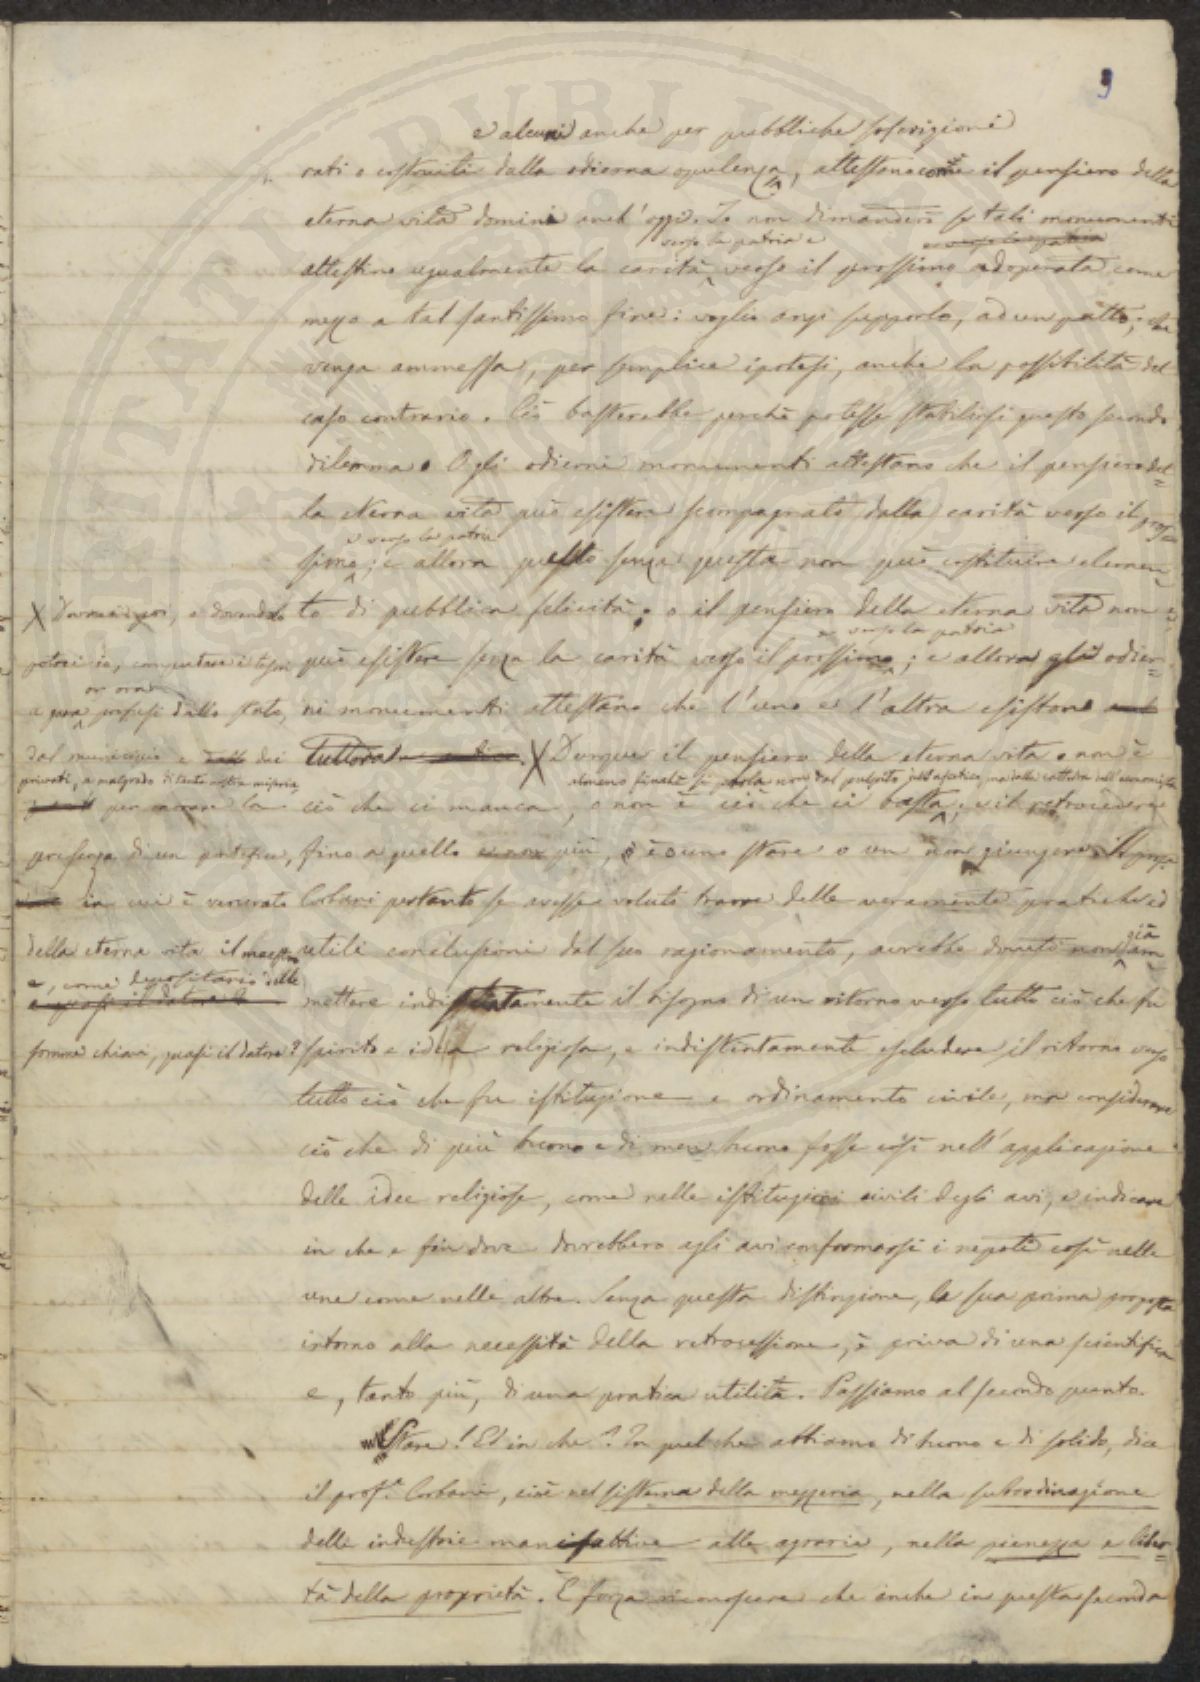 9
e alcuni anche per pubbliche soscrizioni
rati o costruiti dalla odierna opulenza, attestano come il pensiero della
eterna vita domini anch'oggi. Io non dimanderò se tali monumenti
verso la patria e
e verso la patria
attestino egualmente la carità verso il prossimo adoperata come
mezzo a tal santissimo fine: voglio anzi supporlo, ad un patto; che
venga ammessa, per semplice ipotesi, anche la possibilità del
caso contrario. Ciò basterebbe perchè potesse stabilirsi questo secondo
dilemma. O gli odierni monumenti attestano che il pensiero del=
la eterna vita può esistere scompagnato dalla carità verso il pros
e verso la patria
simo; e allora quello senza questa non può costituire elemen=
to di pubblica felicità; o il pensiero della eterna vita non
e verso la patria
può esistere senza la carità verso il prossimo; e allora gli odier=
ni monumenti attestano che l'uno e l'altra esistono
tuttora. X Dunque il pensiero della eterna vita o non è
almeno finchè si parla non dal pulpito dell'ascetico, ma dalla cattedra dell'economista
ciò che ci manca, o non è ciò che ci basta; e il retrocedere
fino a quello e non più, è o uno stare o un non giungere. Il prof.
Corbani pertanto se avesse voluto trarre delle veramente pratiche ed
utili conclusioni dal suo ragionamento, avrebbe dovuto non già am=
mettere indistintamente il bisogno di un ritorno verso tutto ciò che fu
spirito e idea religiosa, e indistintamente escludere il ritorno verso
tutto ciò che fu istituzione e ordinamento civile, ma considerare
ciò che di più buono e di men buono fosse così nell'applicazione
delle idee religiose, come nelle istituzioni civili degli avi, e indicare
in che e fin dove dovrebbero agli avi conformarsi i nepoti così nelle
une come nelle altre. Senza questa distinzione, la sua prima proposta
intorno alla necessità della retrocessione, è priva di una scientifica
e, tanto più, di una pratica utilità. Passiamo al secondo punto.
Stare! Ed in che? In quel che abbiamo di buono e di solido, dice
il prof.e Corbani, cioè nel sistema della mezzeria, nella subordinazione
delle industrie manifattive alle agrarie, nella pienezza e liber=
tà della proprietà. È forza riconoscere che anche in questa seconda
X Dovremo poi, e dovendolo
potremo, computare i tesori
or ora
a gara profusi dallo stato,
dal municipio e dai
privati, a malgrado di tanta nostra miseria,
per onorare la
presenza di un pontefice,
in cui è venerato
della eterna vita il maestro
e, come depositario delle
e quasi il datore
somme chiavi, quasi il datore?